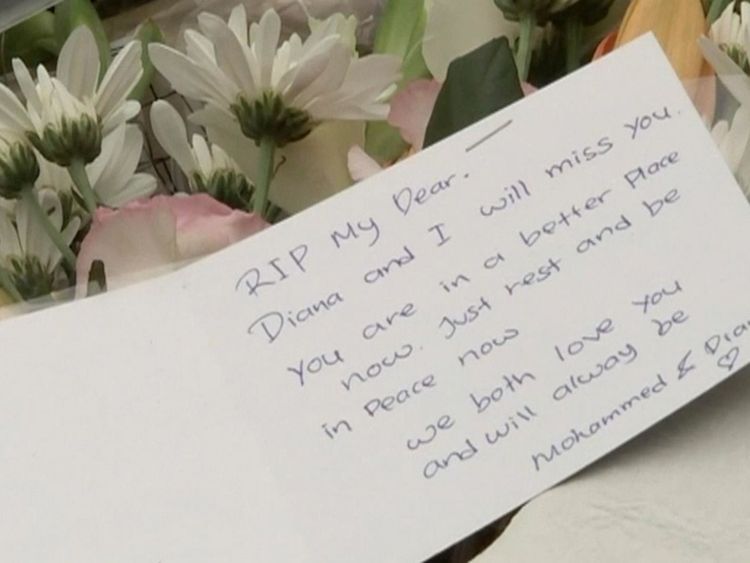 RIP My Dear.
Diana and I will miss you.
you are in a better Place
now. Just rest and be
in Peace now
we both love you
and will alway be
Mohammed & Dia